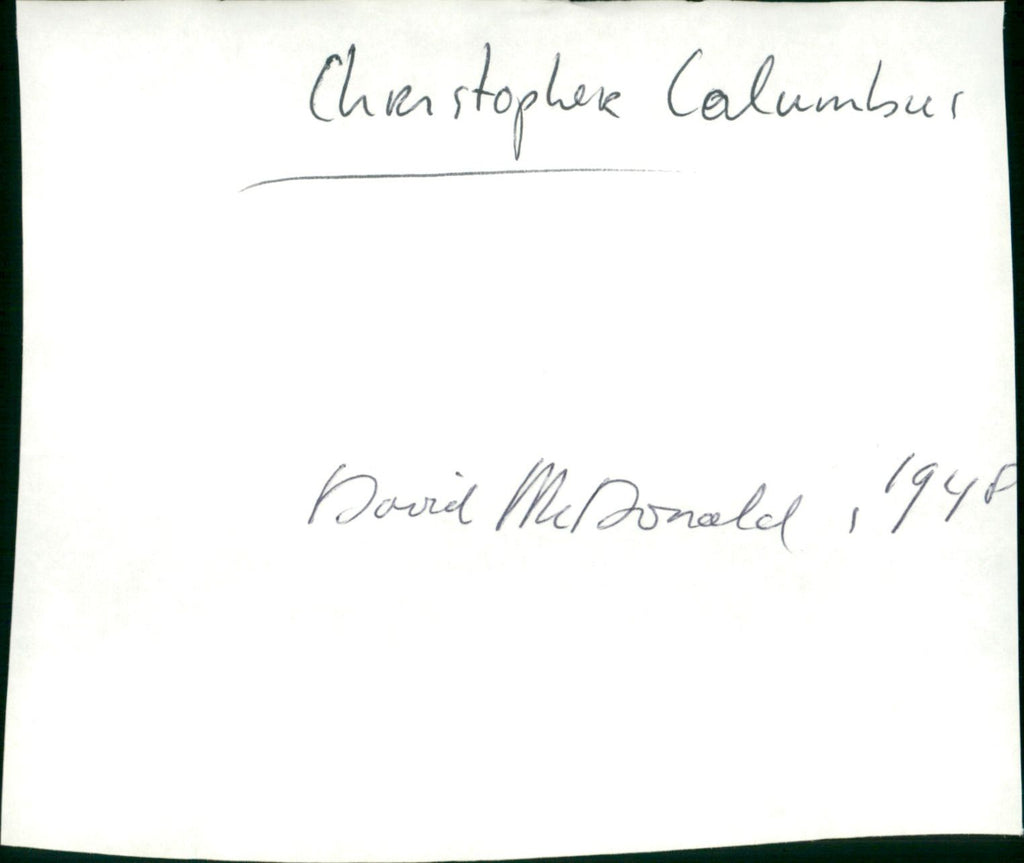 Christopher Columbus
David McDonald, 1948